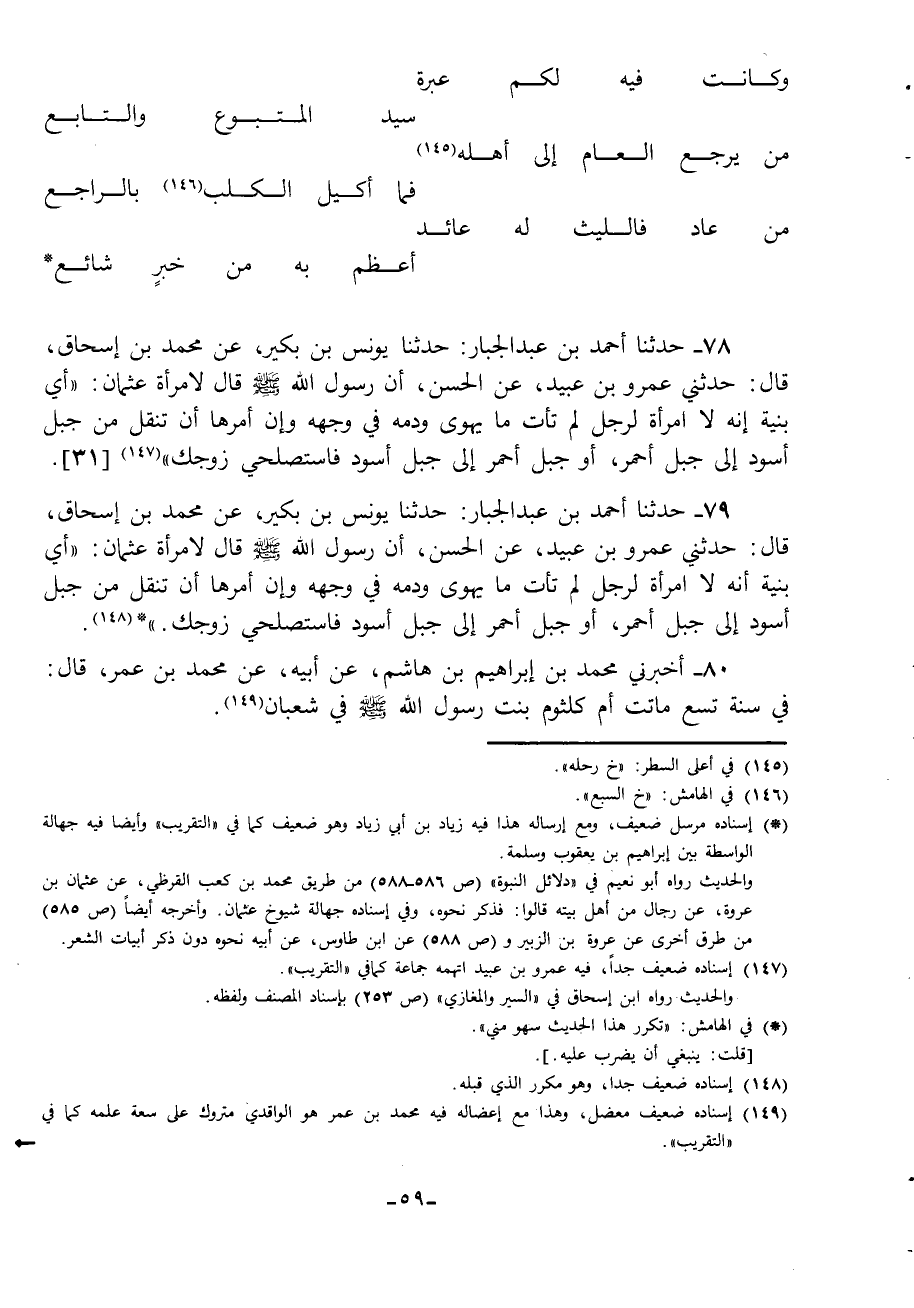 وكـانـت فيه لكـم عبرة
سيد المـتـبـوع والتـابـع
من يرجـع الـعـام إلى أهـله(١٤٥)
فما أكيل الـكـلب(١٤٦) بالـراجـع
من عاد فالـليث له عائـد
أعـظم به من خبرٍ شائـع*
٧٨ـ حدثنا أحمد بن عبدالجبار: حدثنا يونس بن بكير، عن محمد بن إسحاق،
قال: حدثني عمرو بن عبيد، عن الحسن، أن رسول الله ﷺ قال لامرأة عثمان: «أي
بنية إنه لا امرأة لرجل لم تأت ما يهوى ودمه في وجهه وإن أمرها أن تنقل من جبل
أسود إلى جبل أحمر، أو جبل أحمر إلى جبل أسود فاستصلحي زوجك»(١٤٧) [٣١].
٧٩ـ حدثنا أحمد بن عبدالجبار: حدثنا يونس بن بكير، عن محمد بن إسحاق،
قال: حدثني عمرو بن عبيد، عن الحسن، أن رسول الله ﷺ قال لامرأة عثمان: «أي
بنية أنه لا امرأة لرجل لم تأت ما يهوى ودمه في وجهه وإن أمرها أن تنقل من جبل
أسود إلى جبل أحمر، أو جبل أحمر إلى جبل أسود فاستصلحي زوجك.»*(١٤٨).
٨٠ـ أخبرني محمد بن إبراهيم بن هاشم، عن أبيه، عن محمد بن عمر، قال:
في سنة تسع ماتت أم كلثوم بنت رسول الله ﷺ في شعبان(١٤٩).
(١٤٥) في أعلى السطر: «خ رحله».
(١٤٦) في الهامش: «خ السبع».
(*) إسناده مرسل ضعيف، ومع إرساله هذا فيه زياد بن أبي زياد وهو ضعيف كما في «التقريب» وأيضا فيه جهالة
الواسطة بين إبراهيم بن يعقوب وسلمة.
والحديث رواه أبو نعيم في «دلائل النبوة» (ص ٥٨٦ـ٥٨٨) من طريق محمد بن كعب القرظي، عن عثمان بن
عروة، عن رجال من أهل بيته قالوا: فذكر نحوه، وفي إسناده جهالة شيوخ عثمان. وأخرجه أيضاً (ص ٥٨٥)
من طرق أخرى عن عروة بن الزبير و (ص ٥٨٨) عن ابن طاوس، عن أبيه نحوه دون ذكر أبيات الشعر.
(١٤٧) إسناده ضعيف جداً، فيه عمرو بن عبيد اتهمه جماعة كمافي «التقريب».
والحديث رواه ابن إسحاق في «السير والمغازي» (ص ٢٥٣) بإسناد المصنف ولفظه.
(*) في الهامش: «تكرر هذا الحديث سهو مني».
[قلت: ينبغي أن يضرب عليه.].
(١٤٨) إسناده ضعيف جدا، وهو مكرر الذي قبله.
(١٤٩) إسناده ضعيف معضل، وهذا مع إعضاله فيه محمد بن عمر هو الواقدي متروك على سعة علمه كما في
«التقريب».
ـ٥٩ـ